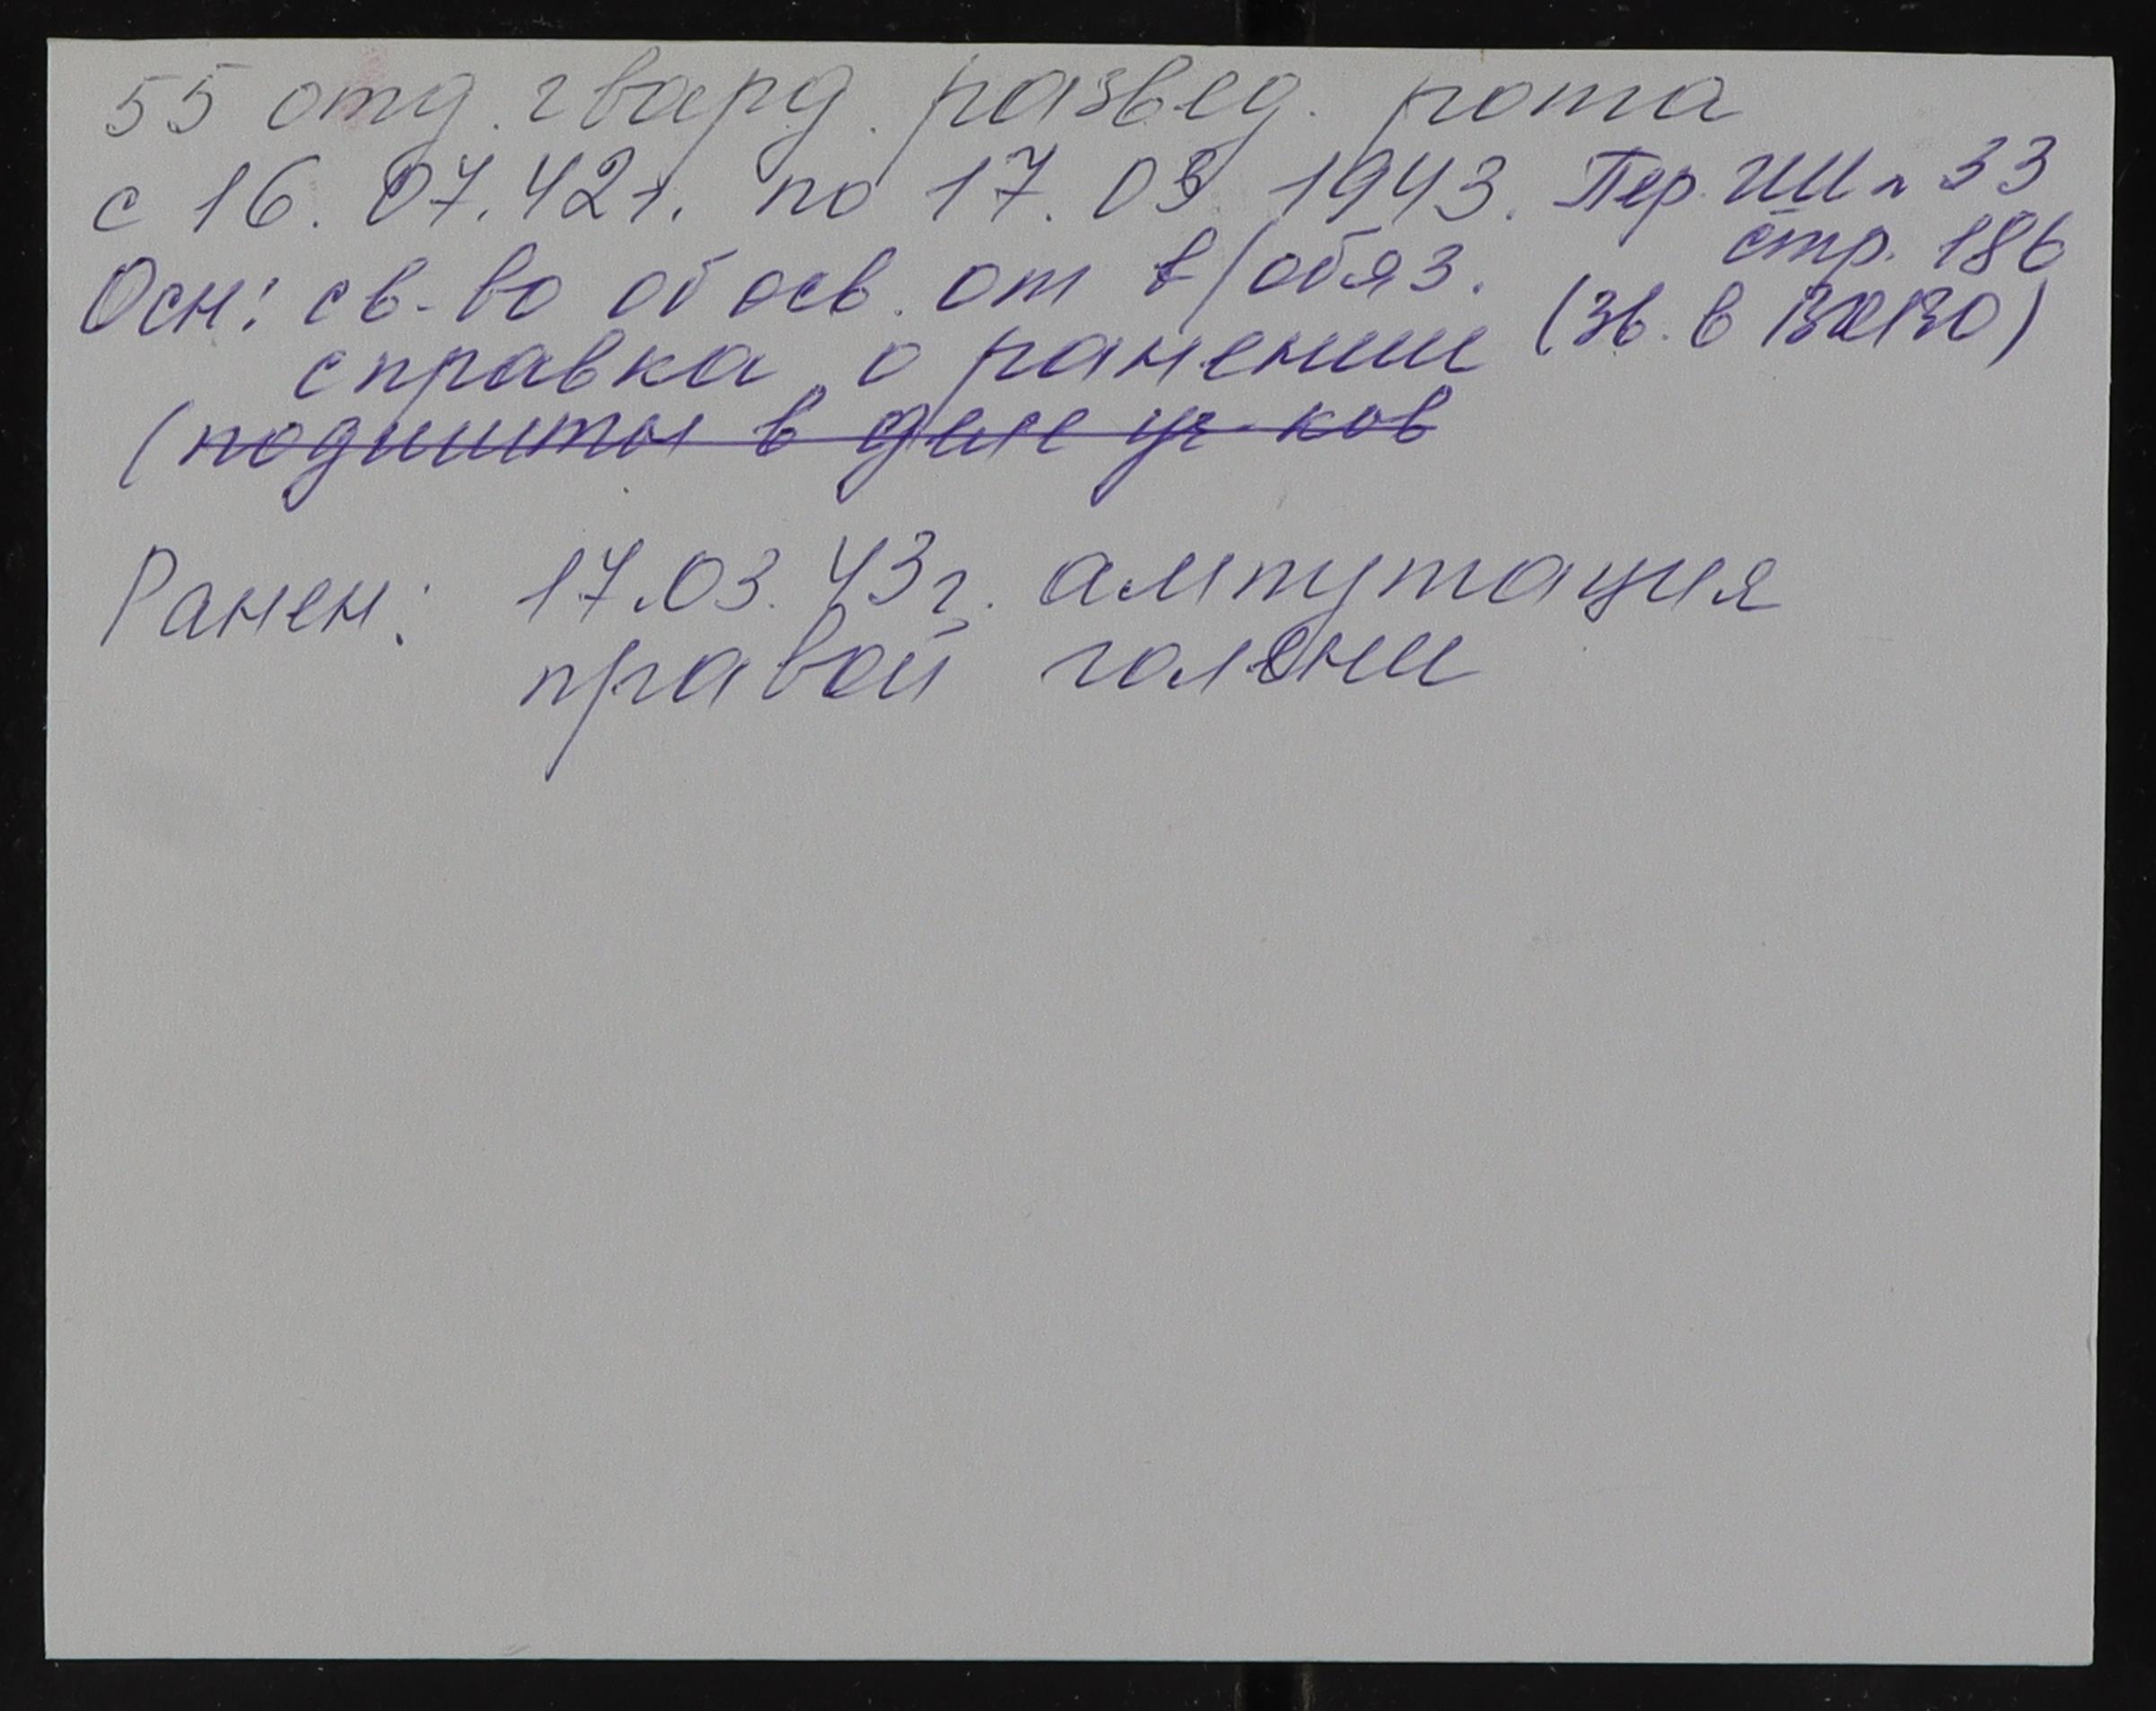 55 отд. гвард. развед. рота
с 16. 07. 42 г. по 17. 03 1943. Пер. ГШ п 33
стр. 186
Осн: св-во об осв. от в/обяз.
справка о ранении (зв. в ВКВО)
(подшиты в деле уч-ков
Ранен: 17.03.43г. ампутация
правой голени